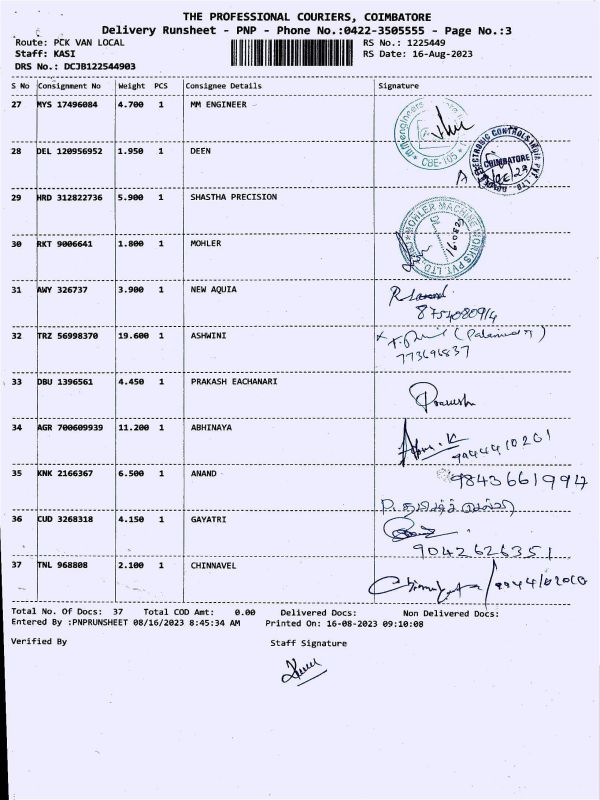 THE PROFESSIONAL COURIERS, COIMBATORE
Delivery Runsheet - PNP - Phone No.:0422-3505555 - Page No.:3
Route: PCK VAN LOCAL RS No.: 1225449
Staff: KASI RS Date: 16-Aug-2023
DRS No.: DCJB122544903
S No Consignment No Weight PCS Consignee Details Signature
27 MYS 17496084 4.700 1 MM ENGINEER
CBE-105
28 DEL 120956952 1.950 1 DEEN
ELECTRONIC CONTROLS INDIA PVT. LTD.
COIMBATORE
29 HRD 312822736 5.900 1 SHASTHA PRECISION
30 RKT 9006641 1.800 1 MOHLER
MOHLER MACHINE WORKS PVT. LTD.
31 AWY 326737 3.900 1 NEW AQUIA
32 TRZ 56998370 19.600 1 ASHWINI
773696837
33 DBU 1396561 4.450 1 PRAKASH EACHANARI
34 AGR 700609939 11.200 1 ABHINAYA
9944410201
35 KNK 2166367 6.500 1 ANAND
9843661994
36 CUD 3268318 4.150 1 GAYATRI
9042626351
37 TNL 968808 2.100 1 CHINNAVEL
Total No. Of Docs: 37 Total COD Amt: 0.00 Delivered Docs: Non Delivered Docs:
Entered By :PNPRUNSHEET 08/16/2023 8:45:34 AM Printed On: 16-08-2023 09:10:08
Verified By Staff Signature